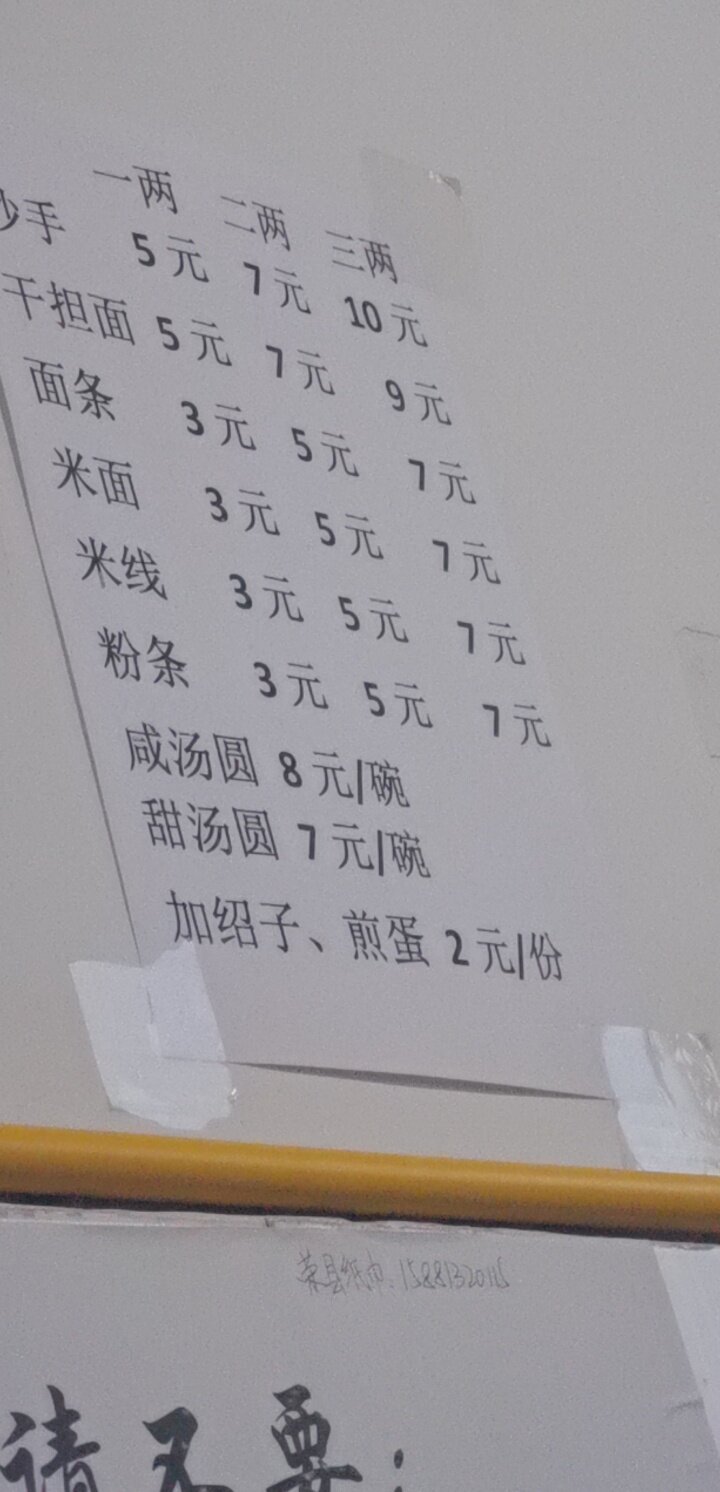 一两 二两 三两
抄手 5元 7元 10元
干担面 5元 7元 9元
面条 3元 5元 7元
米面 3元 5元 7元
米线 3元 5元 7元
粉条 3元 5元 7元
咸汤圆 8元/碗
甜汤圆 7元/碗
加绍子、煎蛋 2元/份
荣县纸巾:
请不要: